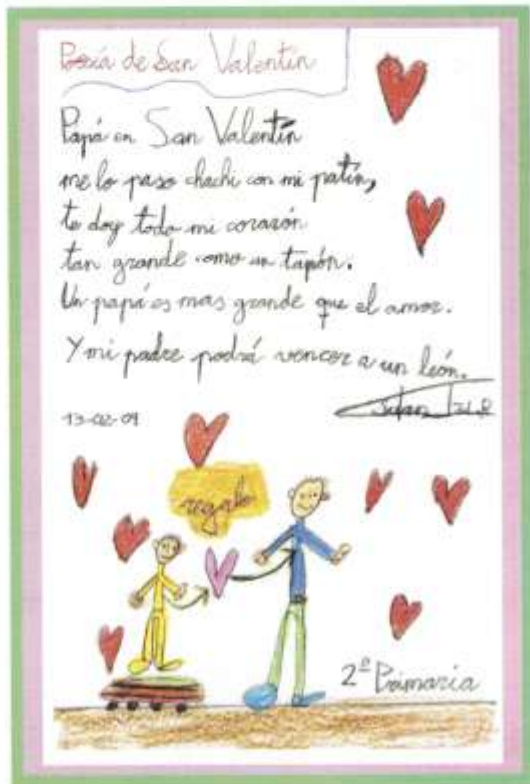 Poesía de San Valentín
Papá en San Valentín
me lo paso chachi con mi patín,
te doy todo mi corazón
tan grande como un tapón.
Un papá es mas grande que el amor.
Y mi padre podrá vencer a un león.
13-02-09
regalo
2º Primaria